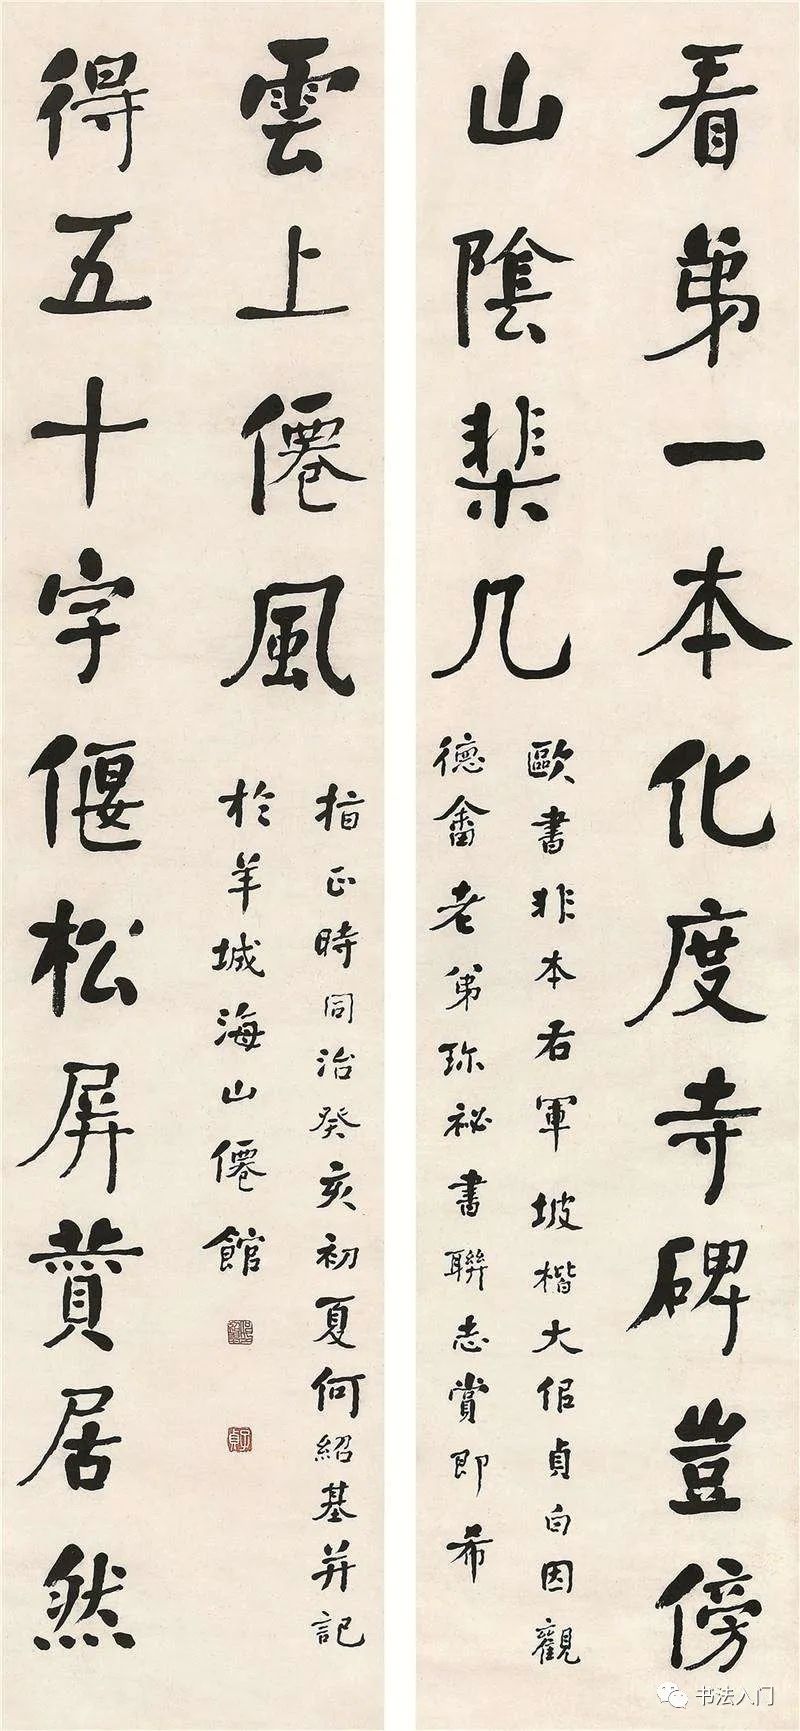 看弟一本化度寺碑豈傍
山陰棐几
歐書非本右軍坡楷大佀貞白因觀
德畬老弟珎祕書聯志賞即希
得五十字偃松屏贊居然
雲上僊風
指正時同治癸亥初夏何紹基并記
於羊城海山僊館
子貞
书法入门